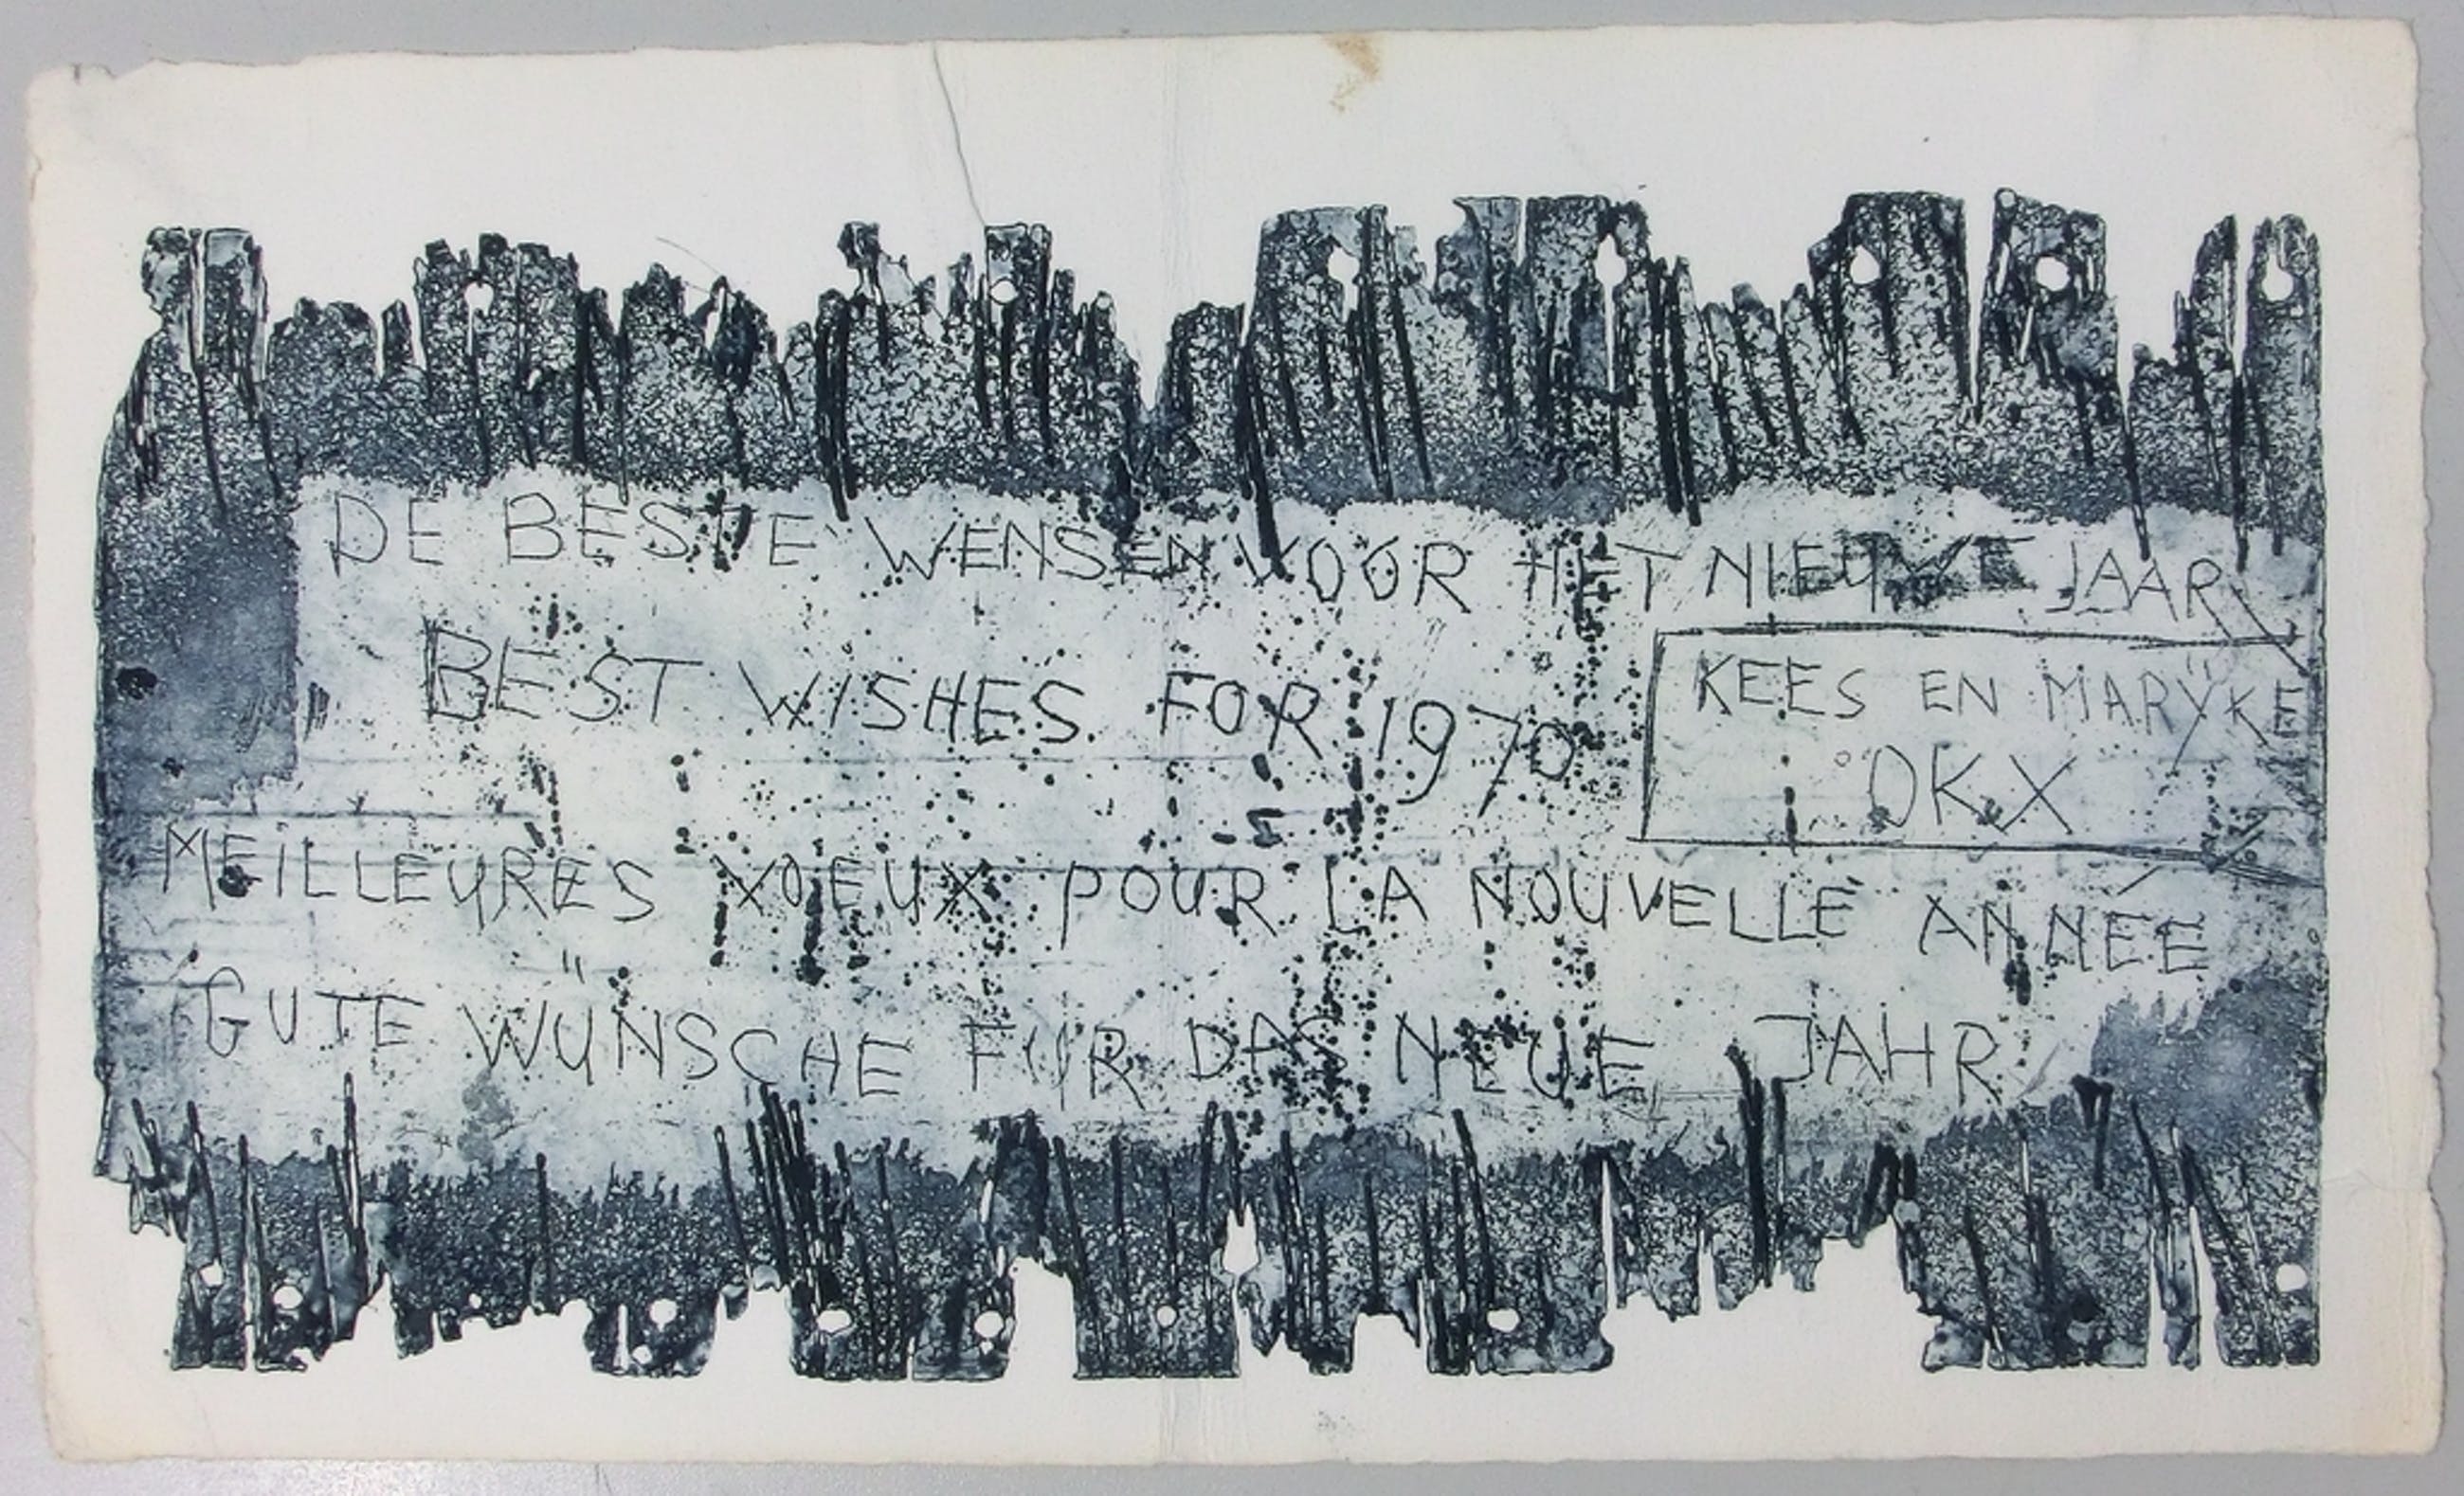 DE BESTE WENSEN VOOR HET NIEUWE JAAR
BEST WISHES FOR 1970
KEES EN MARŸKE
OKX
MEILLEURES VOEUX POUR LA NOUVELLE ANNÉE
GUTE WÜNSCHE FUR DAS NEUE JAHR